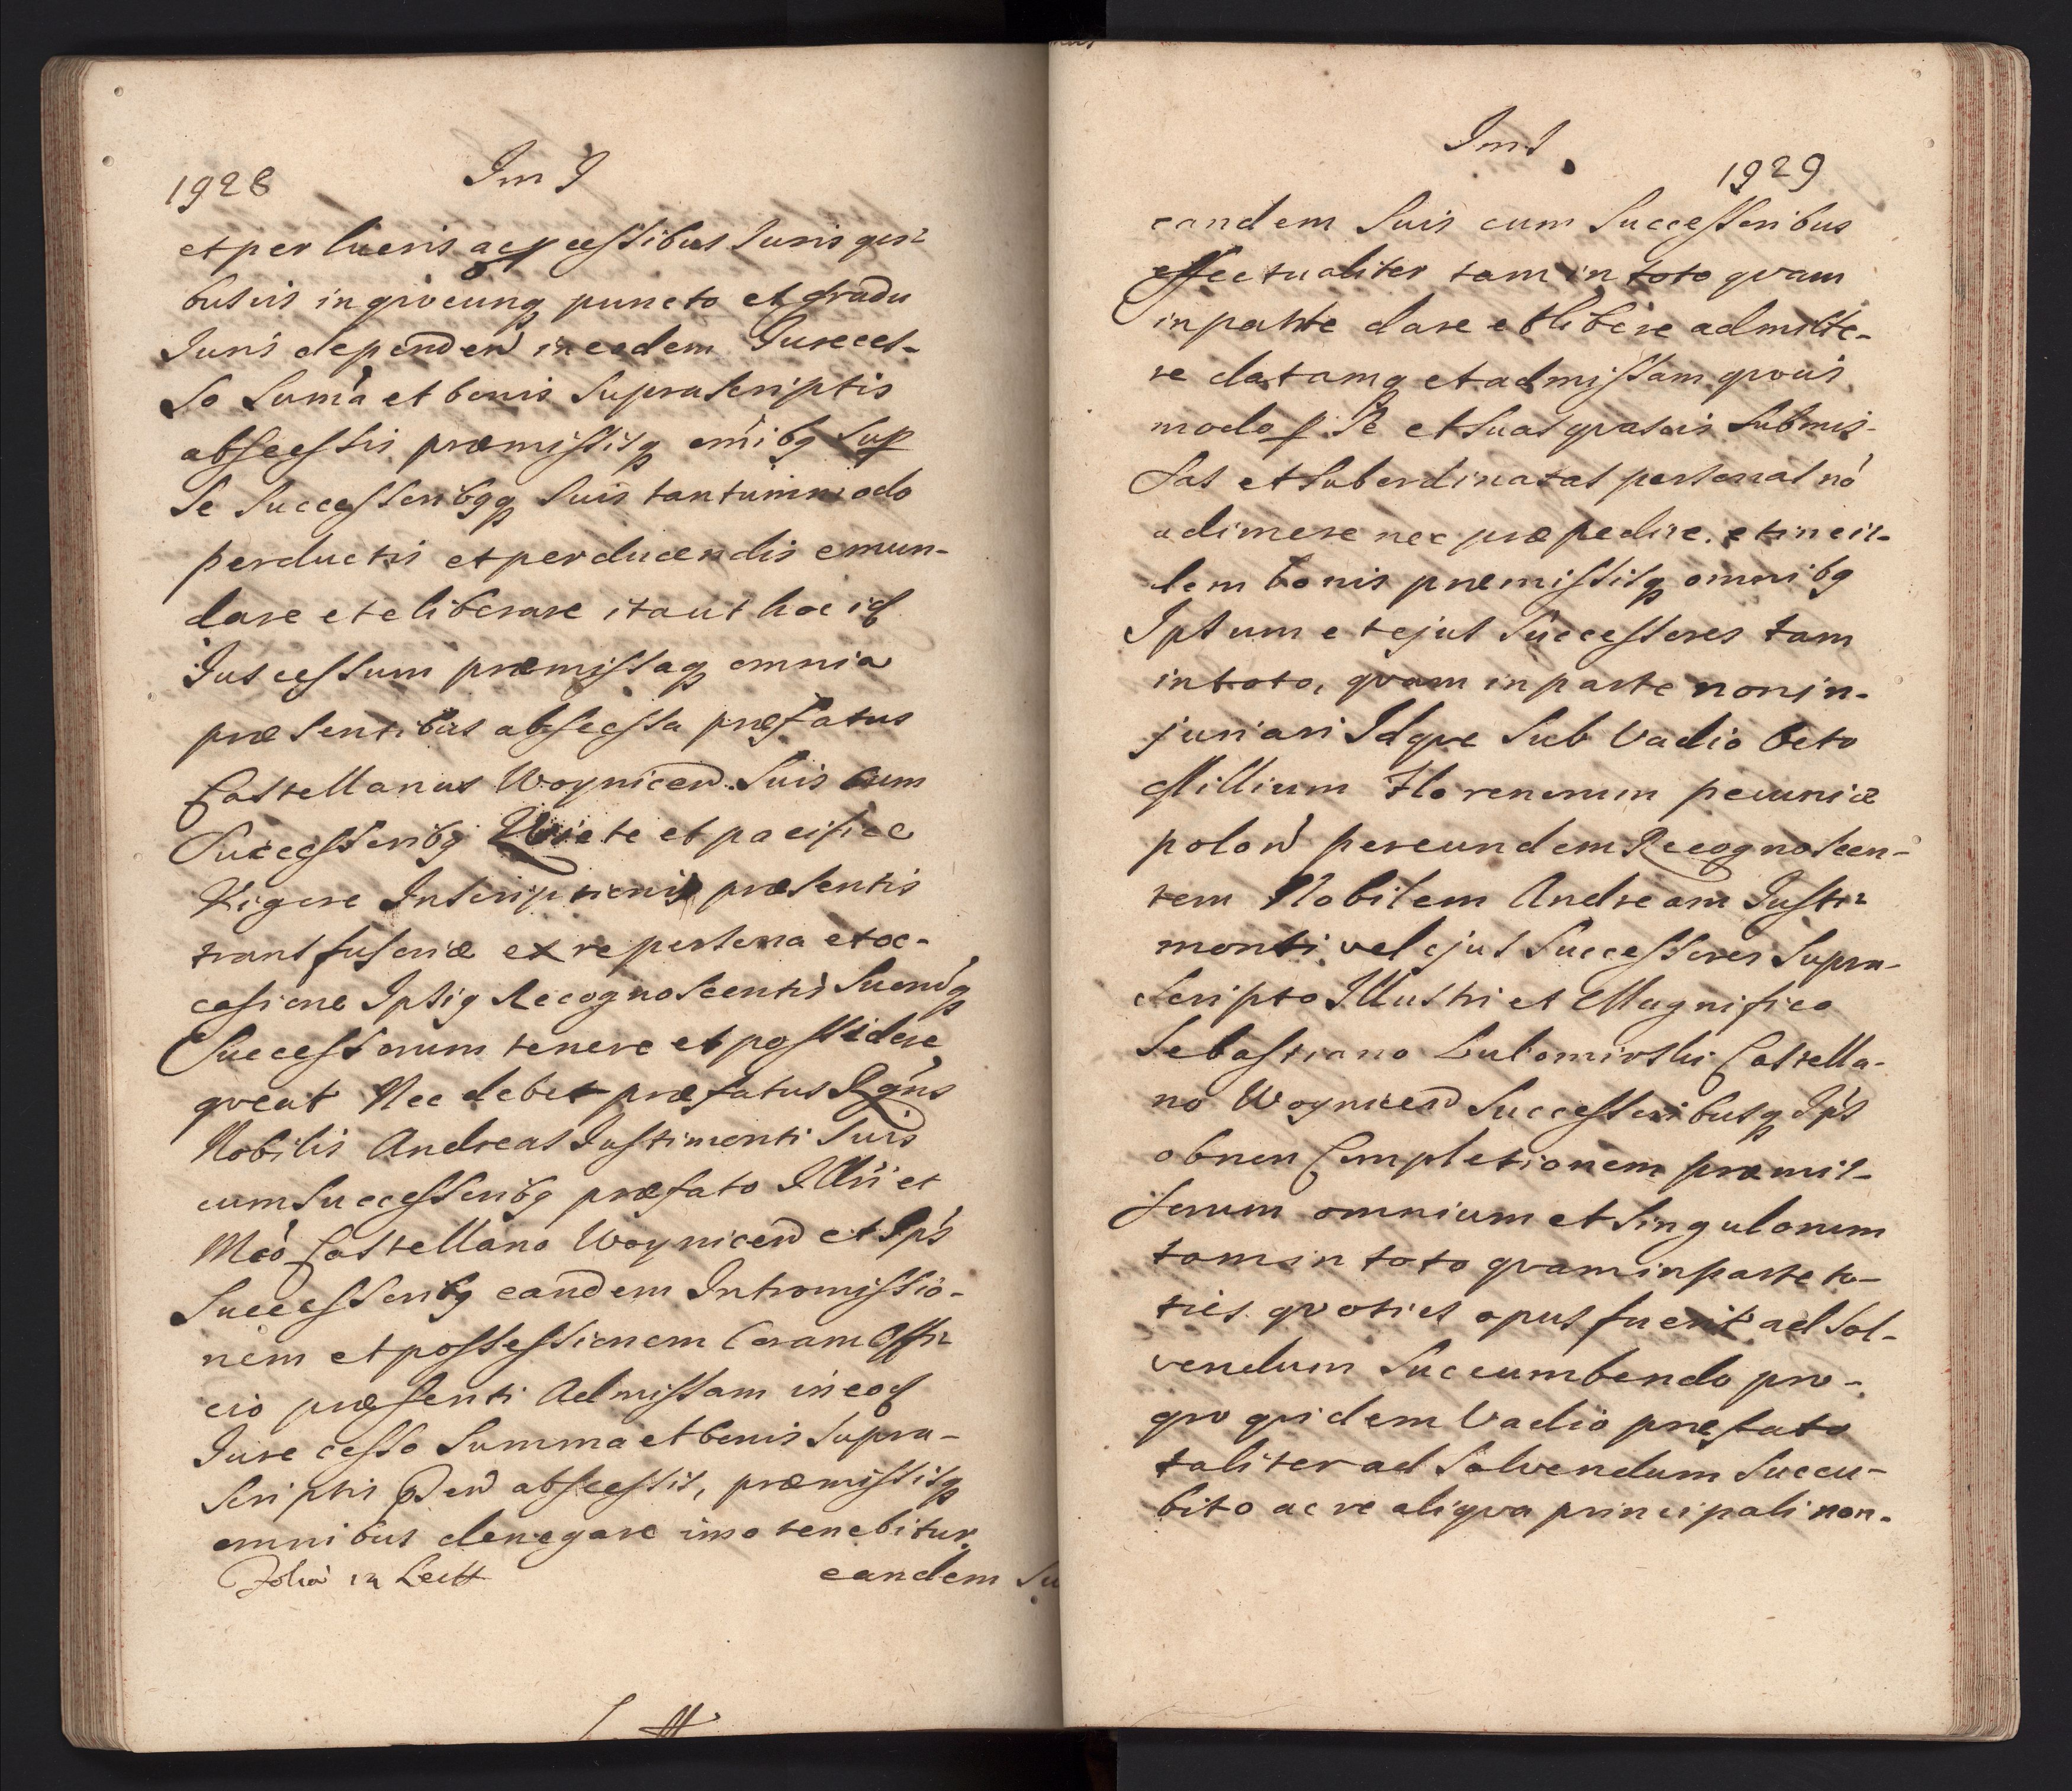 1928
Im I
et per lucris ac processibus Juris qui-
busvis in qvocunq puncto et gradu
Juris dependen in eodem Jure ces-
so Suma et bonis Suprascriptis
abscessis præmissisq omibq Sup
Se Successoribqq Suis tantummodo
perductis et perducendis emun-
dare et eliberare itaut hoc id
Jus cessum præmissaq omnia
præsentibus abscessa præfatus
Castellanus Woynicen Suis cum
Successoribq Qviete et pacifice
Vigore Inscriptionis præsentis
transfusoriæ ex re persona et oc-
casione Ipsiq Recognoscentis Suorq
Successorum tenere et possidere
qveat Nec debet præfatus Rgns
Nobilis Andreas Justimonti Suis
cum Successoribq præfato Illri et
Mco Castellano Woynicen et Ips
Successoribq eandem Intromissio-
nem et possessionem Coram Offi-
cio præsenti Admissam in eod
Jure cesso Summa et bonis Supra-
Scriptis abscessis, præmissisq
omnibus denegare imo tenebitur
Folia in Lectt
eandem Su
Im I
1929
eandem Suis cum Successoribus
effectualiter tam in toto qvam
in parte dare et libere admitte-
re datamq et admissam qvovis
modo p Se et Suas qvasvis Submis-
sas et Subordinatas personas no
adimere nec præpedire. et in eis-
dem bonis præmissisq omnibq
Ipsum et ejus Successores tam
in toto, qvam in parte non in-
juriari Idqve Sub Vadio Octo
Millium Florenorum pecuniæ
polon per eundem Recognoscen-
tem Nobilem Andream Justi-
monti vel ejus Successores Supra-
Scripto Illustri et Magnifico
Sebastiano Lubomirski Castella-
no Woynicen Successoribusq Ips
ob non Completionem præmis-
sorum omnium et Singulorum
tam in toto qvam in parte to-
ties qvoties opus fuerit ad Sol-
vendum Succumbendo pro-
qvo qvidem Vadio præfato
taliter ad Solvendum Succu-
bito ac re aliqva principali non-